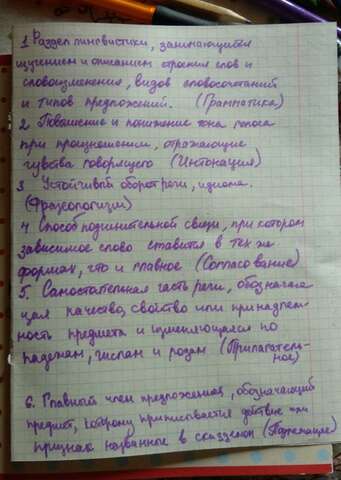 1 Раздел лингвистики, занимающийся
изучением и описанием строения слов и
словоизменения, видов словосочетаний
и типов предложений. (Грамматика)
2 Повышение и понижение тона голоса
при произношении, отражающие
чувства говорящего (Интонация)
3 Устойчивый оборот речи, идиома.
(Фразеологизм)
4 Способ подчинительной связи, при котором
зависимое слово ставится в тех же
формах, что и главное (Согласование)
5. Самостоятельная часть речи, обознача
ющая качество, свойство или принадлеж-
ность предмета и изменяющаяся по
падежам, числам и родам (Прилагатель-
ное)
6. Главный член предложения, обозначающий
предмет, которому приписывается действие или
признак названное в сказуемом (Подлежащее)